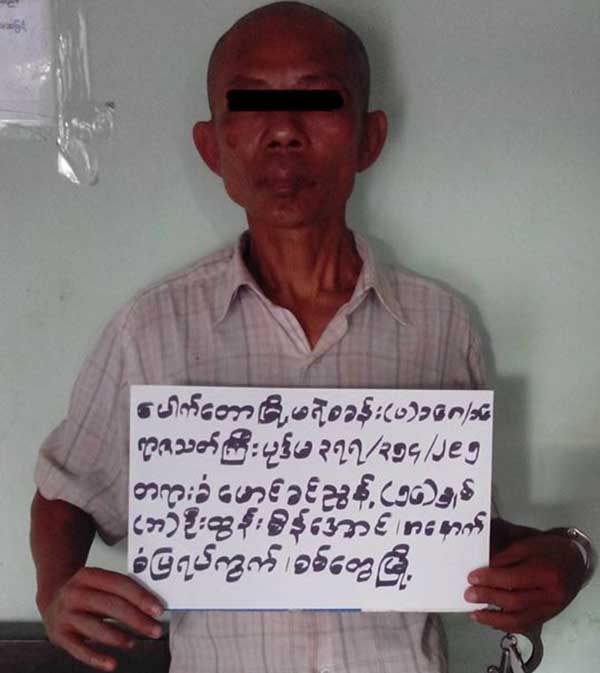 ပေါက်တောမြို့မရဲစခန်း(ပ)
ရာဇသတ်ကြီးပုဒ်မ ၃၇၇/၃၅၄/၂၉၅
တရားခံ မောင်ခင်ညွန့်, နှစ်
(ဘ)ဦးထွန်းစိန်အောင်၊အနောက်
စံပြရပ်ကွက်၊စစ်တွေမြို့